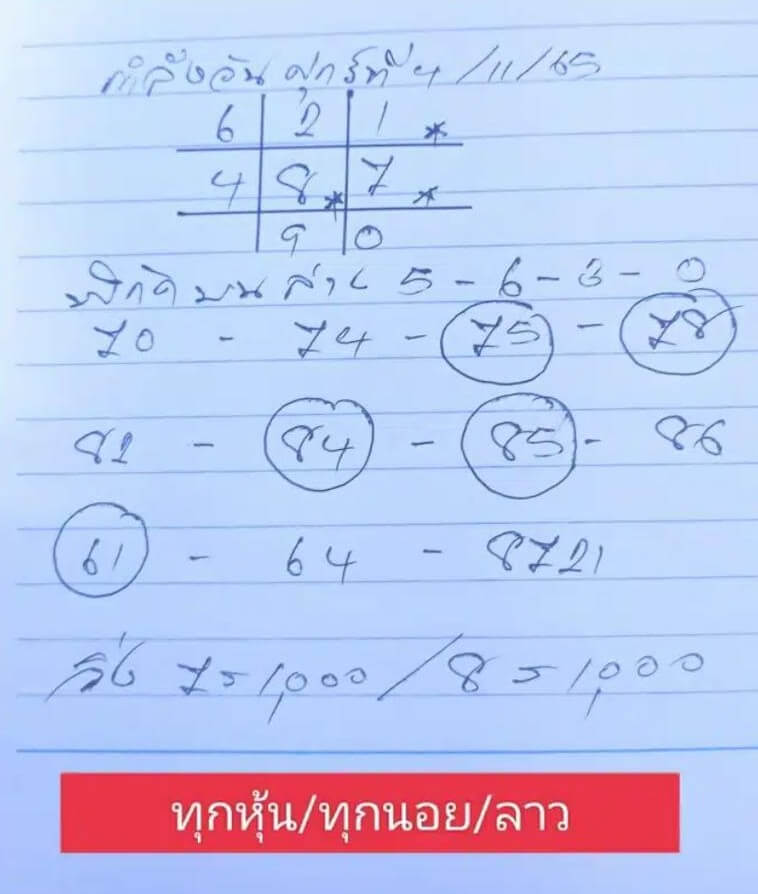 กำลังวันศุกร์ที่ 4/11/65
6 2 1 *
4 8 * 7 *
9 0
พิกัด บน ล่าง 5 - 6 - 3 - 0
70 - 74 - 75 - 78
82 - 84 - 85 - 86
61 - 64 - 8721
วิ่ง 7=1,000 / 8=1,000
ทุกหุ้น/ทุกนอย/ลาว